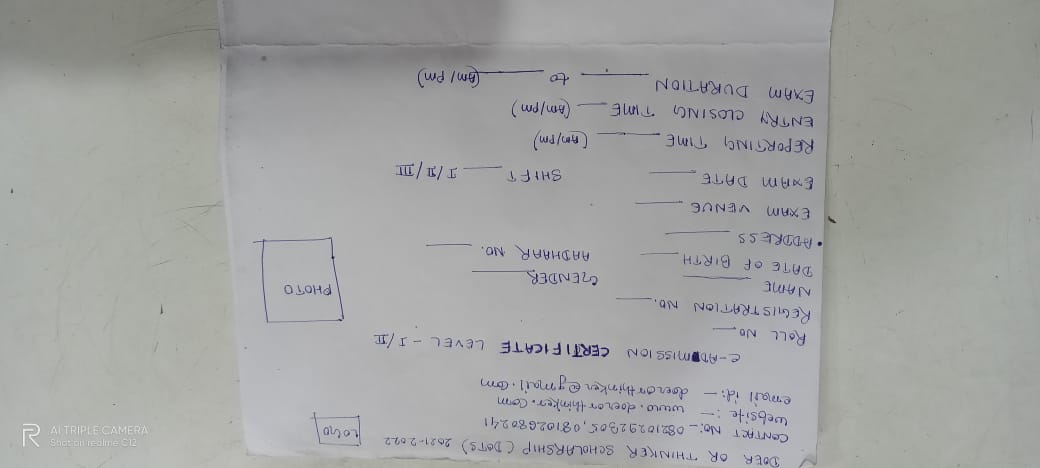 DOER OR THINKER SCHOLARSHIP (DOTS) 2021-2022
LOGO
CONTACT No:- 08210292305, 08102680241
website :- www.doerorthinker.com
email id:- doerorthinker@gmail.com
e-ADMISSION CERTIFICATE LEVEL - I/II
ROLL NO.
REGISTRATION NO.
PHOTO
NAME GENDER
DATE OF BIRTH AADHAAR NO.
ADDRESS
EXAM VENUE
EXAM DATE SHIFT I/II/III
REPORTING TIME (Am/pm)
ENTRY CLOSING TIME (Am/pm)
EXAM DURATION to (Am/pm)
AI TRIPLE CAMERA
Shot on realme C12